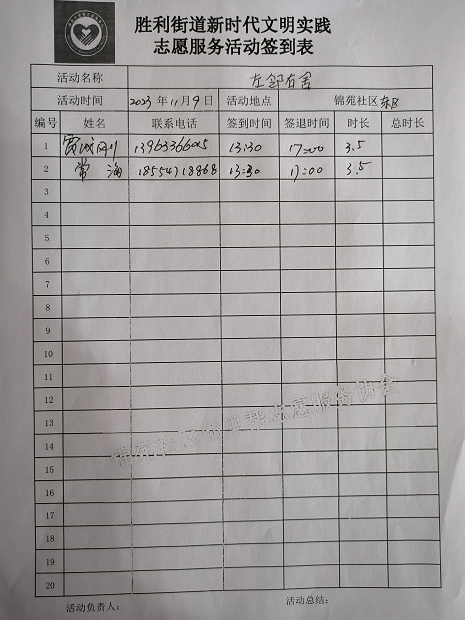 胜利街道新时代文明实践
志愿服务活动签到表
活动名称 左邻右舍
活动时间 2023年11月9日 活动地点 锦苑社区东区
编号 姓名 联系电话 签到时间 签退时间 时长 总时长
1 13:30 17:00 3.5
2 常海 18554718868 13:30 17:00 3.5
3
4
5
6
7
8
9
10
11
12
13
14
15
16
17
18
19
20
志愿服务协会
活动负责人： 活动总结：